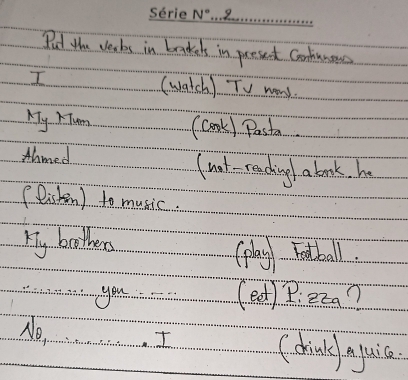 Série N° 2
Put the verbs in brakets in present Continuous
I (watch) TV now.
My Mum (Cook) Pasta.
Ahmed (not-reading) a book. he
(listen) to music.
My brothers (play) Football.
......... you ....... (eat) Pizza?
No, .......... I (drink) a juice.